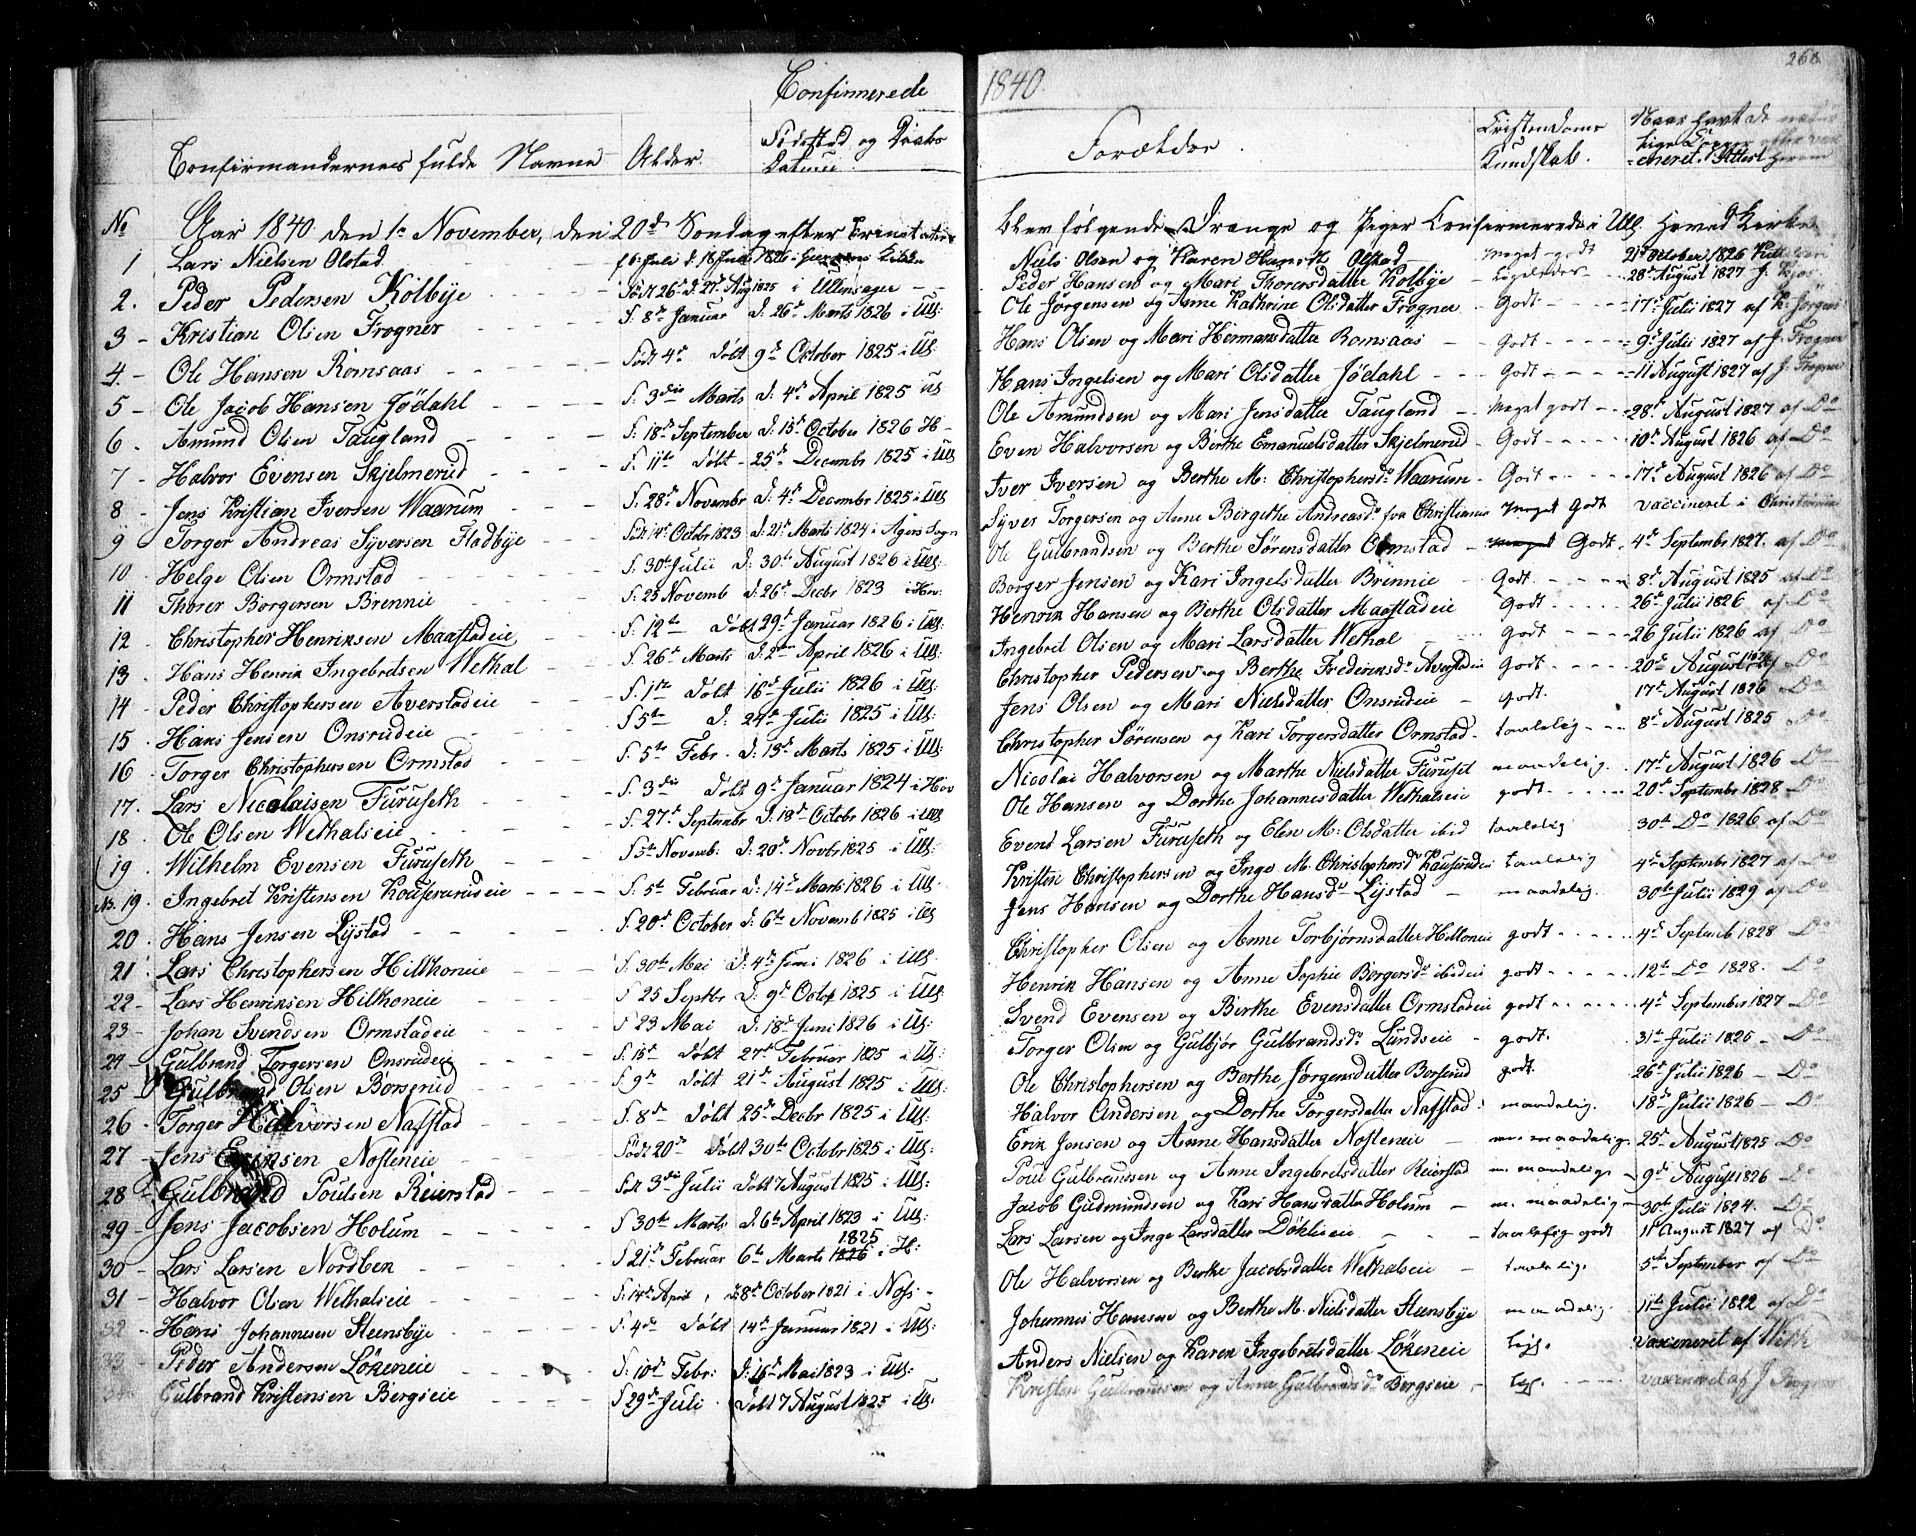 Confirmerede 1840.
268
Confirmandernes fulde Navne Alder. Fødested og Daabs Datum. Forældre. Cristendoms Kundskab. Naar havt de
No Aar 1840 den 1e November, den 20de Søndag efter Trinitatis blev følgende Drenge og Piger Confirmerede i Ull. Hoved Kirke
1 Lars Nielsen Olstad f 6 Juli d. 18 Juli 1826 i Niels Olsen og Karen Hansd. Olstad meget godt 21de October 1826
2. Peder Pedersen Kolbye Født 26de D. 27de Aug 1825 i Ullensager Peder Hansen og Mari Thorersdatter Kolbye Ligeledes 28de August 1827 J. Kjos
3 - Kristian Olsen Frogner F. 8de Januar D. 26de Marts 1826 i Ull: Ole Jørgensen og Anne Kathrine Olsdatter Frogner Godt 17de Julii 1827 af
4. - Ole Hansen Romsaas Født 4de Døbt 9de October 1825 i Ull Hans Olsen og Mari Hermansdatter Romsaas Godt 9de Julii 1827 af J. Frogner
5 - Ole Jacob Hansen Jødahl F. 3die Marts D. 4de April 1825 Ull Hans Ingelsen og Mari Olsdatter Jødahl Godt 11 August 1827 af J. Frogner
6 - Amund Olsen Taugland F. 18de September D. 15de October 1826 H - Ole Amundsen og Mari Jensdatter Taugland Meget godt 28de August 1827 af Do
7 - Halvor Evensen Skjelmerud F. 11te Døbt - 25de Decembr 1825 i Ull Even Halvorsen og Berthe Emanuelsdatter Skjelmerud Godt 10de August 1826 af Do
8 - Jens Kristian Iversen Waarum F. 28de Novembr D. 4de Decembr 1825 i Ull Iver Iversen og Berthe M: Christophersdr Waarum Godt 17de August 1826 af Do
9 - Torger Andreas Syversen Fladbye Født 14de Octobr 1823 D. 21de Marts 1824 i Agers Sogn Syver Torgersen og Anne Birgethe Andreasdr fra Christiania Meget Godt vaccineret i Christiania
10 - Helge Olsen Ormstad F. 30te Julii D. 30te August 1826 i Ull: Ole Gulbrandsen og Berthe Sørensdatter Ormstad Meget Godt 4de Septembr 1827. af Do
11 - Thorer Borgersen Brennie F. 25 Novemb D. 26de Decbr 1823 i Hov: Borger Jensen og Kari Ingelsdatter Brennie Godt 8de August 1825 af Do
12 - Christopher Henriksen Maastadeie F. 12te Døbt 29de Januar 1826 i Ull: Henrik Hansen og Berthe Olsdatter Maastadeie Godt 26de Julii 1826 af Do
13. Hans Henrik Ingebretsen Wethal F. 26de Marts D. 2den April 1826 i Ull: Ingebret Olsen og Mari Larsdatter Wethal Godt 26 Julii 1826 af Do
14 - Peder Christophersen Averstadeie F. 1te Døbt 16de Julii 1826 i Ull: Christopher Pedersen og Berthe Frederiksdr Averstadeie Godt 20de August 1826 af Do
15. Hans Jensen Onsrudeie F 5te D. 24de Julii 1825 i Ull: Jens Olsen og Mari Nielsdatter Onsrudeie Godt. 17de August 1826 Do
16 - Torger Christophersen Ormstad F. 5te Febr. D. 13de Marts 1825 i Ull: Christopher Sørensen og Kari Torgersdatter Ormstad taalelig 8de August 1825 Do
17. Lars Nicolaisen Furuseth F. 3die Døbt 9de Januar 1824 i Hov Nicolai Halvorsen og Marthe Nielsdatter Furuset maadelig. 17de August 1826 Do
18. Ole Olsen Wethalseie F. 27de Septembr D. 18de Octobr 1826 i Ull Ole Hansen og Dorthe Johannesdatter Wethalseie godt 20de Septembr 1828 Do
19. Wilhelm Evensen Furuseth F 5te Novemb: D. 20de Novbr 1825 i Ull: Evend Larsen Furuseth og Elen M: Olsdatter ibid taalelig 30te Do 1826 af Do
No. 19. Ingebret Kristensen Kauserudeie F. 5te Februar D. 14de Marts 1826 i Ull: Kristen Christophersen og Inge M. Christophersdr Kauserudeie taalelig 4de Septembr 1827 af Do
20. Hans Jensen Lystad F. 20de October D. 6te Novemb 1825 i Ull Jens Hansen og Dorthe Hansdr Lystad maadelig. 30te Julii 1829 af Do
21. Lars Christophersen Hilthoneie F. 30te Mai D. 4de Juni 1826 i Ull. Christopher Olsen og Anne Torbjørnsdatter Hiltoneie godt 4de Septemb 1828 Do
22 - Lars Henriksen Hilthoneie F 25 Septbr D. 9de Octob 1825 i Ull Henrik Hansen og Anne Sophie Borgersdr ibideie godt 12te Do 1828. Do
23 - Johan Svendsen Ormstadeie F 23 Mai D. 18de Juni 1826 i Ull. Svend Evensen og Berthe Evensdatter Ormstadeie godt 4de September 1827 Do
24 - Gulbrand Torgersen Onsrudeie F. 15de Døbt 27de Februar 1825 i Ull: Torger Olsen og Gulbjør Gulbrandsdr Lundseie godt. 31te Julii 1825 - Do
25 Gulbrand Olsen Borserud F. 9de Døbt 21de August 1825 i Ull: Ole Christophersen og Berthe Jørgensdatter Borserud godt. 26de Julii 1826 - Do
26 - Torger Halvorsen Nafstad F. 8de Døbt 25de Decbr 1825 i Ull: Halvor Andersen og Dorthe Torgersdatter Nafstad: maadelig. 18de Julii 1826 - Do
27 - Jens Eriksen Nosteneie Født 20de Døbt 30te October 1825 i Ull: Erik Jensen og Anne Hansdatter Nosteneie m. maadelig. 25de August 1825 Do
28 - Gulbrand Poulsen Reierstad Født 3die Julii Døbt 7 August 1825 i Ull: Poul Gulbrandsen og Anne Ingebretsdatter Reierstad m. maadelige 9de August 1826 Do
29 - Jens Jacobsen Holum F. 30te Marts D. 6te April 1823 i Ull: Jacob Gudmundsen og Kari Hansdatter Holum m. maadelig 30te Julii 1824. Do
30 - Lars Larsen Nordsben F. 21de Februar 6te Marts 1826 1825 i H: Lars Larsen og Inge Larsdatter Døhlieie taalelig godt 11 August 1827 af Do
31 - Halvor Olsen Wethalseie F. 14de April, D. 8de October 1821 i Ole Halvorsen og Berthe Jacobsdatter Wethalseie taalelig. 5te September af Do
32 - Hans Johannesen Steensbye F. 4de Døbt 14de Januar 1821 i Ull: Johannes Hansen og Berthe M. Nielsdatter Steensbye maadelig. 11te Julii 1822 af Do
33 - Peder Andersen Løkeneie F. 10de Febr: D. 16de Mai 1823 i Ull: Anders Nielsen og Karen Ingebretsdatter Løkeneie ligs. vaxeneret af
34 Gulbrand Kristensen Bergseie F 29de Juli Døbt 7 August 1825 i Ull. Kristen Gulbrandsen og Anne Gulbrandsdr Bergseie ligs. vaxeneret af J. Frogner